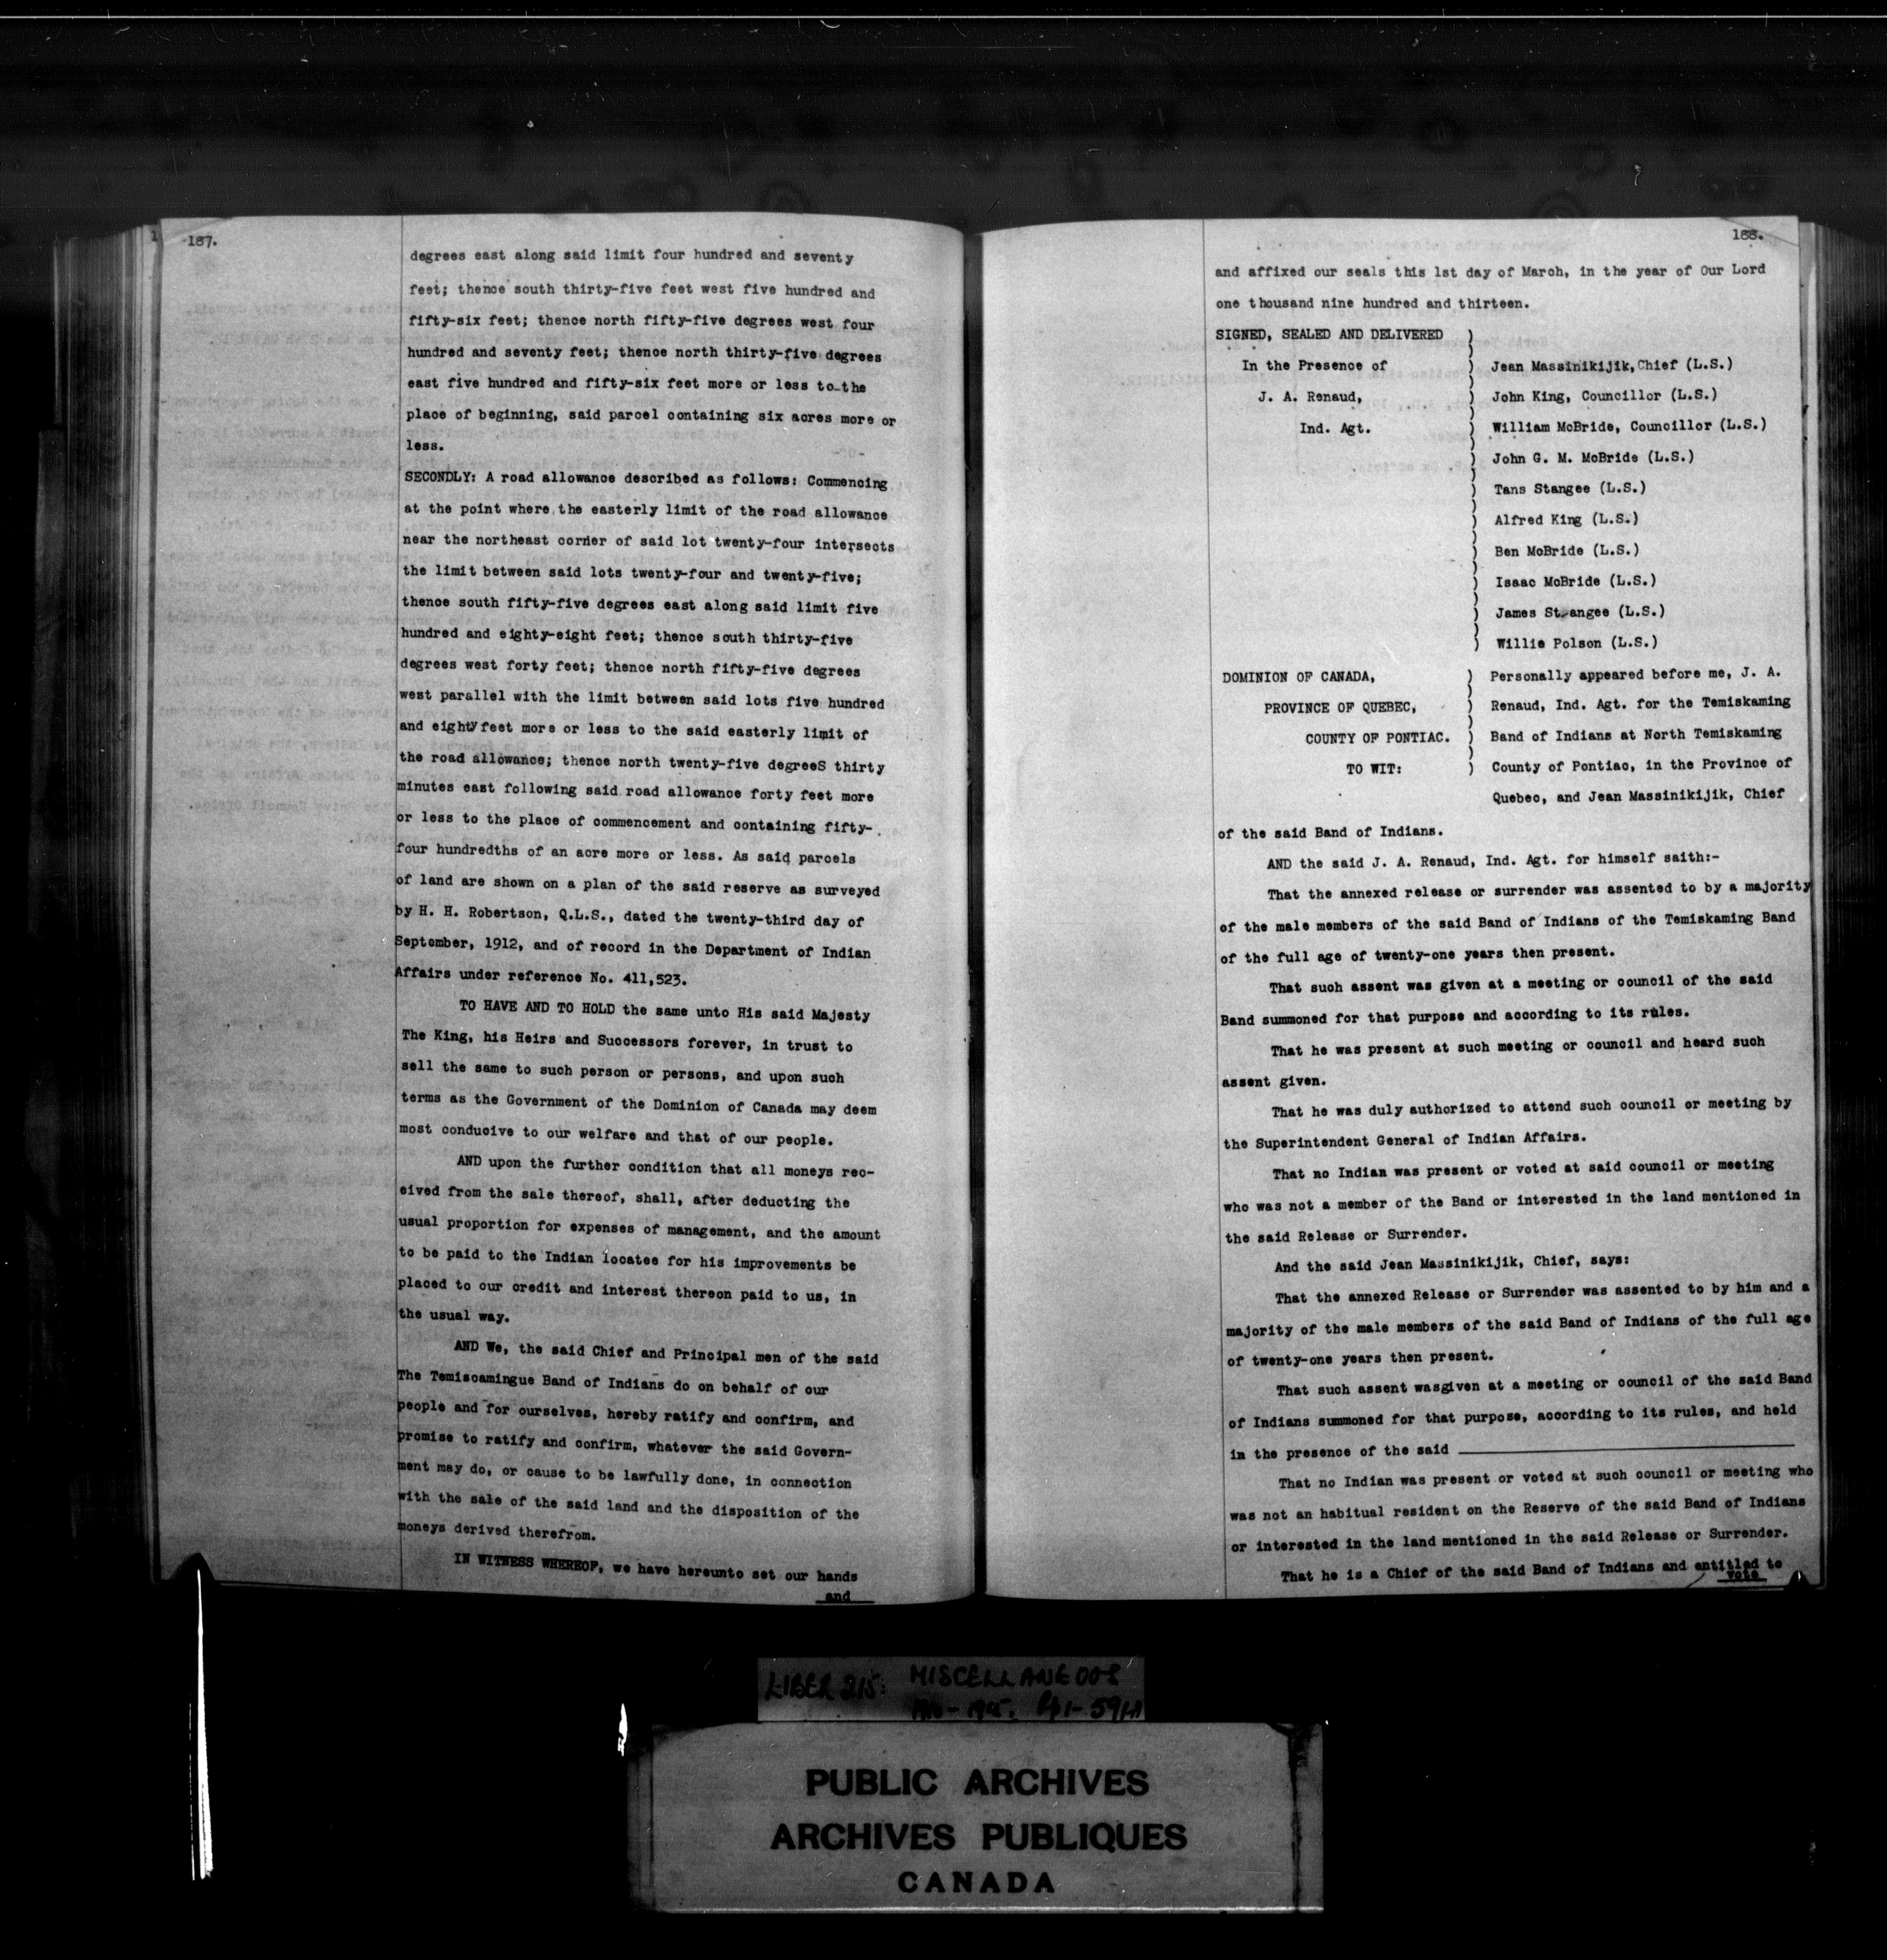 187.
degrees east along said limit four hundred and seventy
feet; thence south thirty-five feet west five hundred and
fifty-six feet; thence north fifty-five degrees west four
hundred and seventy feet; thence north thirty-five degrees
east five hundred and fifty-six feet more or less to the
place of beginning, said parcel containing six acres more or
less.
SECONDLY: A road allowance described as follows: Commencing
at the point where the easterly limit of the road allowance
near the northeast corner of said lot twenty-four intersects
the limit between said lots twenty-four and twenty-five;
thence south fifty-five degrees east along said limit five
hundred and eighty-eight feet; thence south thirty-five
degrees west forty feet; thence north fifty-five degrees
west parallel with the limit between said lots five hundred
and eighty feet more or less to the said easterly limit of
the road allowance; thence north twenty-five degreeS thirty
minutes east following said road allowance forty feet more
or less to the place of commencement and containing fifty-
four hundredths of an acre more or less. As said parcels
of land are shown on a plan of the said reserve as surveyed
by H. H. Robertson, Q.L.S., dated the twenty-third day of
September, 1912, and of record in the Department of Indian
Affairs under reference No. 411,523.
TO HAVE AND TO HOLD the same unto His said Majesty
The King, his Heirs and Successors forever, in trust to
sell the same to such person or persons, and upon such
terms as the Government of the Dominion of Canada may deem
most conducive to our welfare and that of our people.
AND upon the further condition that all moneys rec-
eived from the sale thereof, shall, after deducting the
usual proportion for expenses of management, and the amount
to be paid to the Indian locatee for his improvements be
placed to our credit and interest thereon paid to us, in
the usual way.
AND We, the said Chief and Principal men of the said
The Temiscamingue Band of Indians do on behalf of our
people and for ourselves, hereby ratify and confirm, and
promise to ratify and confirm, whatever the said Govern-
ment may do, or cause to be lawfully done, in connection
with the sale of the said land and the disposition of the
moneys derived therefrom.
IN WITNESS WHEREOF, we have hereunto set our hands
and
188.
and affixed our seals this 1st day of March, in the year of Our Lord
one thousand nine hundred and thirteen.
SIGNED, SEALED AND DELIVERED )
In the Presence of ) Jean Massinikijik, Chief (L.S.)
J. A. Renaud, ) John King, Councillor (L.S.)
Ind. Agt. ) William McBride, Councillor (L.S.)
) John G. M. McBride (L.S.)
) Tans Stangee (L.S.)
) Alfred King (L.S.)
) Ben McBride (L.S.)
) Isaac McBride (L.S.)
) James Stangee (L.S.)
) Willie Polson (L.S.)
DOMINION OF CANADA, ) Personally appeared before me, J. A.
PROVINCE OF QUEBEC, ) Renaud, Ind. Agt. for the Temiskaming
COUNTY OF PONTIAC. ) Band of Indians at North Temiskaming
TO WIT: ) County of Pontiac, in the Province of
Quebec, and Jean Massinikijik, Chief
of the said Band of Indians.
AND the said J. A. Renaud, Ind. Agt. for himself saith:-
That the annexed release or surrender was assented to by a majority
of the male members of the said Band of Indians of the Temiskaming Band
of the full age of twenty-one years then present.
That such assent was given at a meeting or council of the said
Band summoned for that purpose and according to its rules.
That he was present at such meeting or council and heard such
assent given.
That he was duly authorized to attend such council or meeting by
the Superintendent General of Indian Affairs.
That no Indian was present or voted at said council or meeting
who was not a member of the Band or interested in the land mentioned in
the said Release or Surrender.
And the said Jean Massinikijik, Chief, says:
That the annexed Release or Surrender was assented to by him and a
majority of the male members of the said Band of Indians of the full age
of twenty-one years then present.
That such assent wasgiven at a meeting or council of the said Band
of Indians summoned for that purpose, according to its rules, and held
in the presence of the said
That no Indian was present or voted at such council or meeting who
was not an habitual resident on the Reserve of the said Band of Indians
or interested in the land mentioned in the said Release or Surrender.
That he is a Chief of the said Band of Indians and entitled to
vote
LIBER 215: MISCELLANEOUS
PUBLIC ARCHIVES
ARCHIVES PUBLIQUES
CANADA